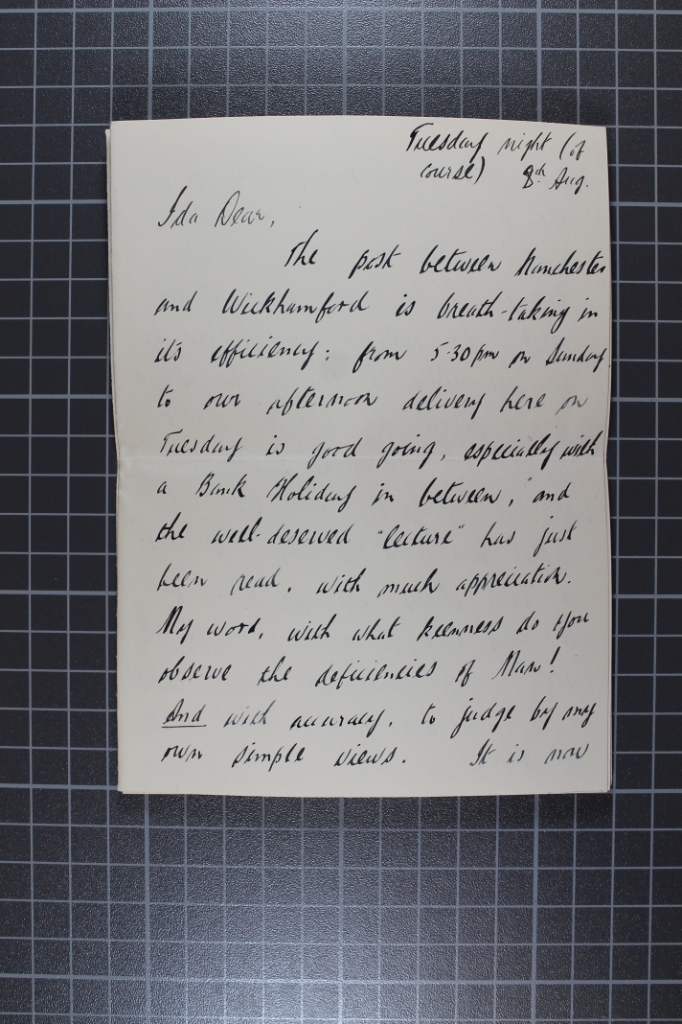 Tuesday night (of
course) 8th Aug.
Ida Dear,
The post between Manchester
and Wickhamford is breath-taking in
its efficiency: from 5-30 pm on Sunday
to our afternoon delivery here on
Tuesday is good going, especially with
a Bank Holiday in between, and
the well-deserved "lecture" has just
been read, with much appreciation.
My word, with what keenness do you
observe the deficiencies of Man!
And with accuracy, to judge by my
own simple views. It is now